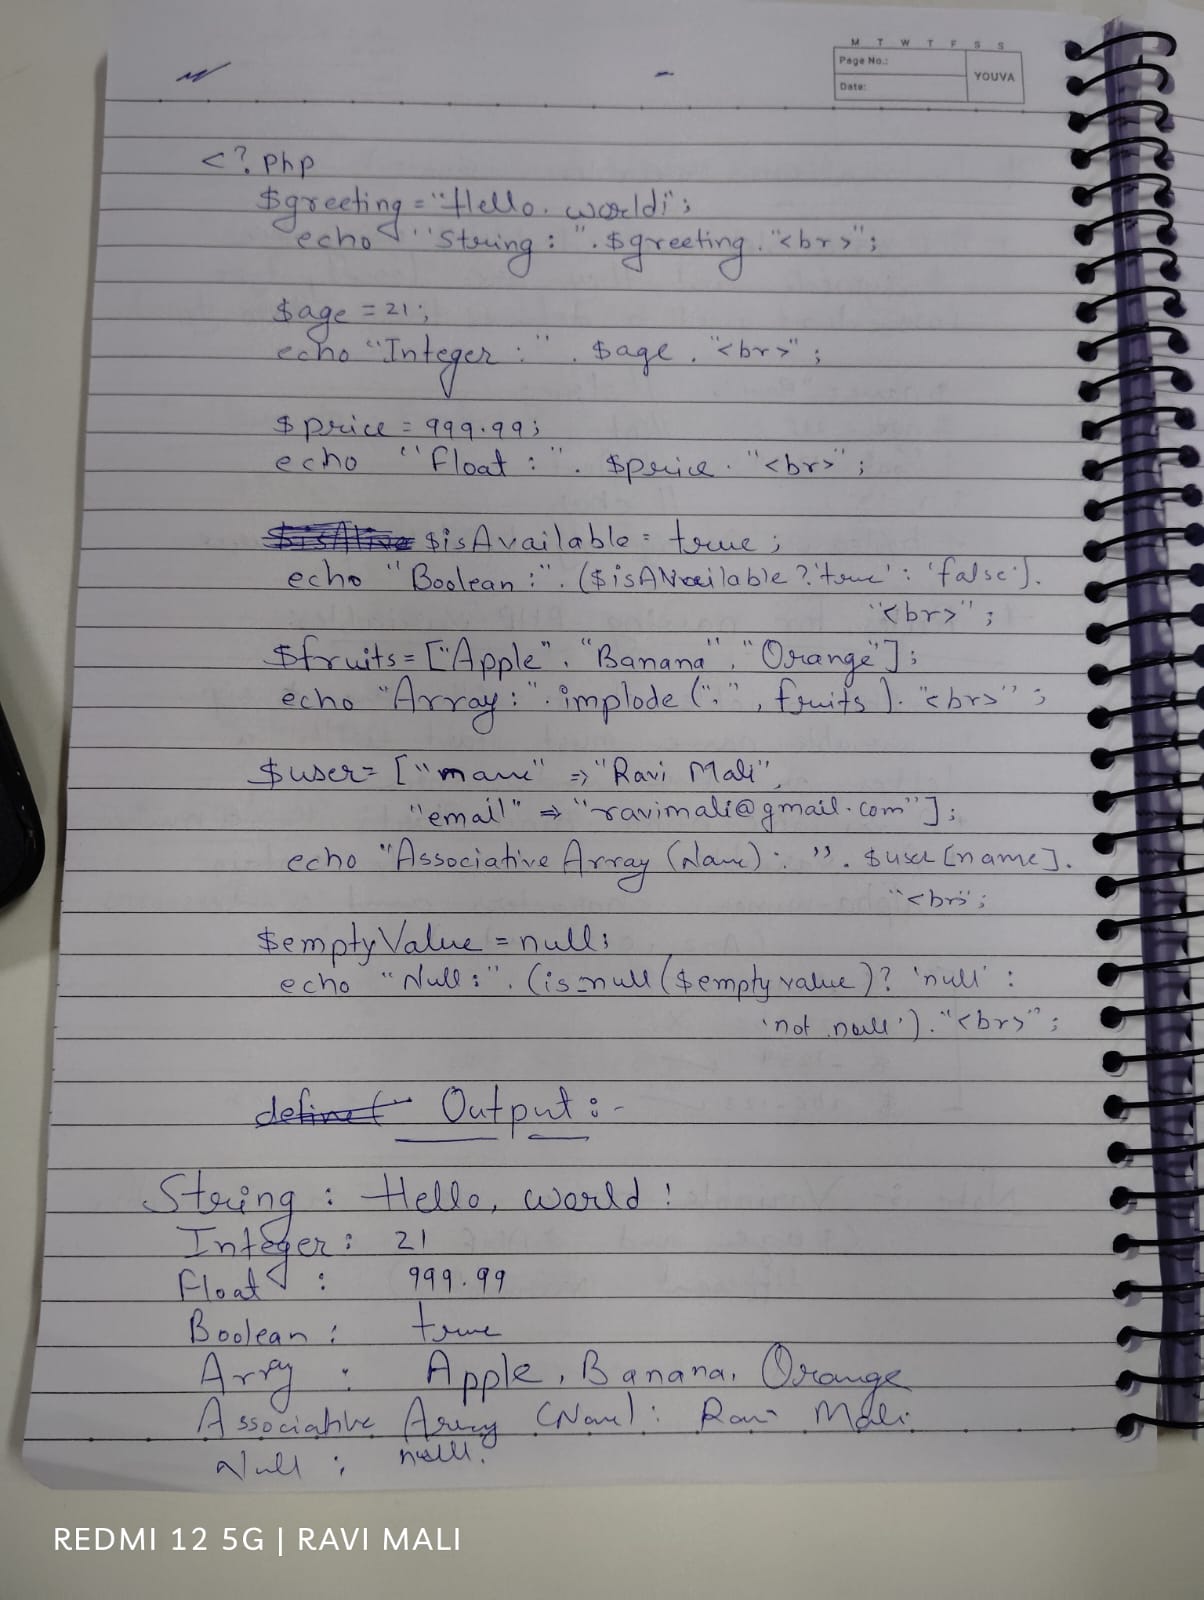 M T W T F S S
Page No.:
YOUVA
Date:
<?php
$greeting = "Hello. world!";
echo "String : ". $greeting. "<br>";
$age = 21;
echo "Integer : " . $age . "<br>" ;
$price = 999.99;
echo "Float : ". $price. "<br>" ;
$isAvailable = true ;
echo "Boolean : ". ($isAvailable ? 'true' : 'false').
"<br>" ;
$fruits = ["Apple", "Banana", "Orange"];
echo "Array : ". implode (", ", fruits ). "<br>" ;
$user = ["name" => "Ravi Mali",
"email" => "ravimali@gmail.com"];
echo "Associative Array (Name) : ". $user [name].
"<br";
$emptyValue = null;
echo "Null : ". (is_null ($emptyvalue)? 'null' :
'not null'). "<br>" ;
define( Output :-
String : Hello, world !
Integer : 21
Float : 999.99
Boolean : true
Array : Apple, Banana, Orange
Associative Array (Name) : Ravi Mali.
Null : null.
REDMI 12 5G | RAVI MALI